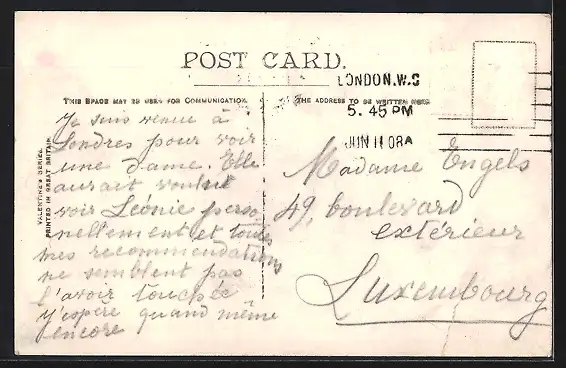 POST CARD.
THIS SPACE MAY BE USED FOR COMMUNICATION.
THE ADDRESS TO BE WRITTEN HERE
LONDON.W.C
5.45PM
JUN 11 08A
VALENTINE'S SERIES.
PRINTED IN GREAT BRITAIN
Je suis venue à
Londres pour voir
une dame. Elle
aurait voulu
voir Léonie perso
nellement et toutes
mes recommendations
ne semblent pas
l'avoir touchée
J'espère quand même
encore
Madame Engels
49, boulevard
extérieur
Luxembourg